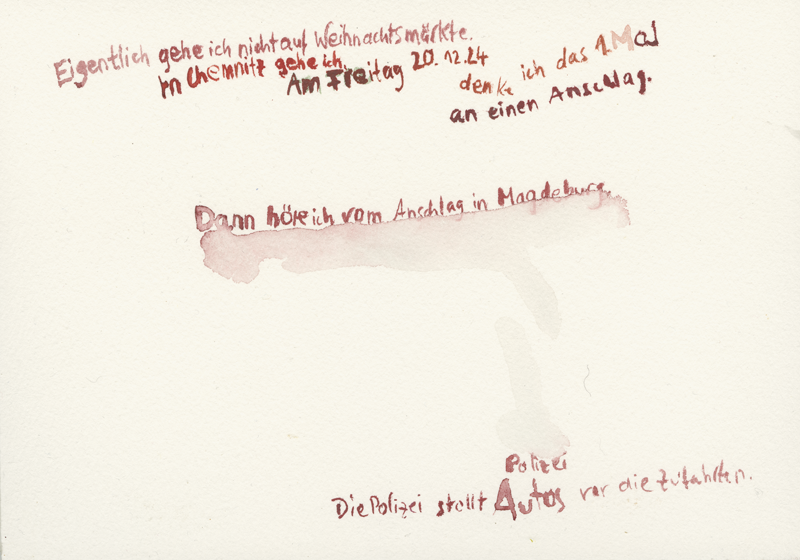 Eigentlich gehe ich nicht auf Weihnachtsmärkte.
In Chemnitz gehe ich.
Am Freitag 20.12.24
denke ich das 1.Mal
an einen Anschlag.
Dann höre ich vom Anschlag in Magdeburg.
Polizei
Die Polizei stellt Autos vor die Zufahrten.